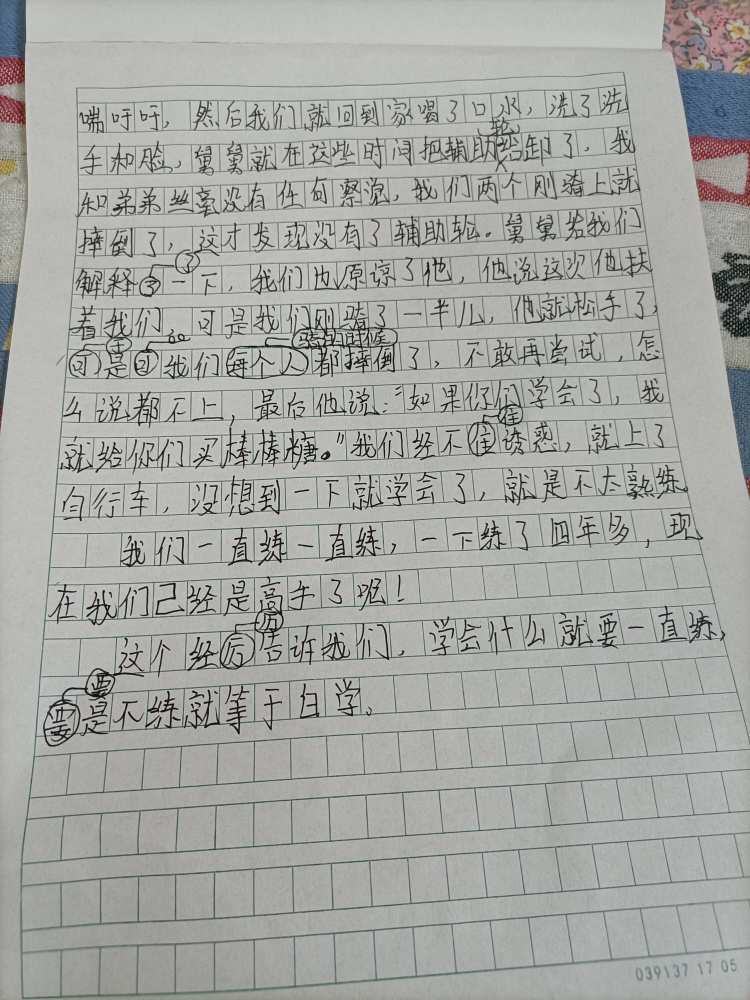 喘吁吁，然后我们就回到家喝了口水，洗了洗
手和脸，舅舅就在这些时间把辅助轮给卸了，我
和弟弟丝毫没有任何察觉，我们两个刚骑上就
摔倒了，这才发现没有了辅助轮。舅舅给我们
解释了一下，我们也原谅了他，他说这次他扶
着我们，可是我们刚骑了一半儿，他就松手了，
于是我们骑的时候都摔倒了，不敢再尝试，怎
么说都不上，最后他说：“如果你们学会了，我
就给你们买棒棒糖。”我们经不住诱惑，就上了
自行车，没想到一下就学会了，就是不太熟练。
我们一直练一直练，一下练了四年多，现
在我们己经是高手了呢！
这个经历告诉我们，学会什么就要一直练，
要是不练就等于白学。
039137 17 05